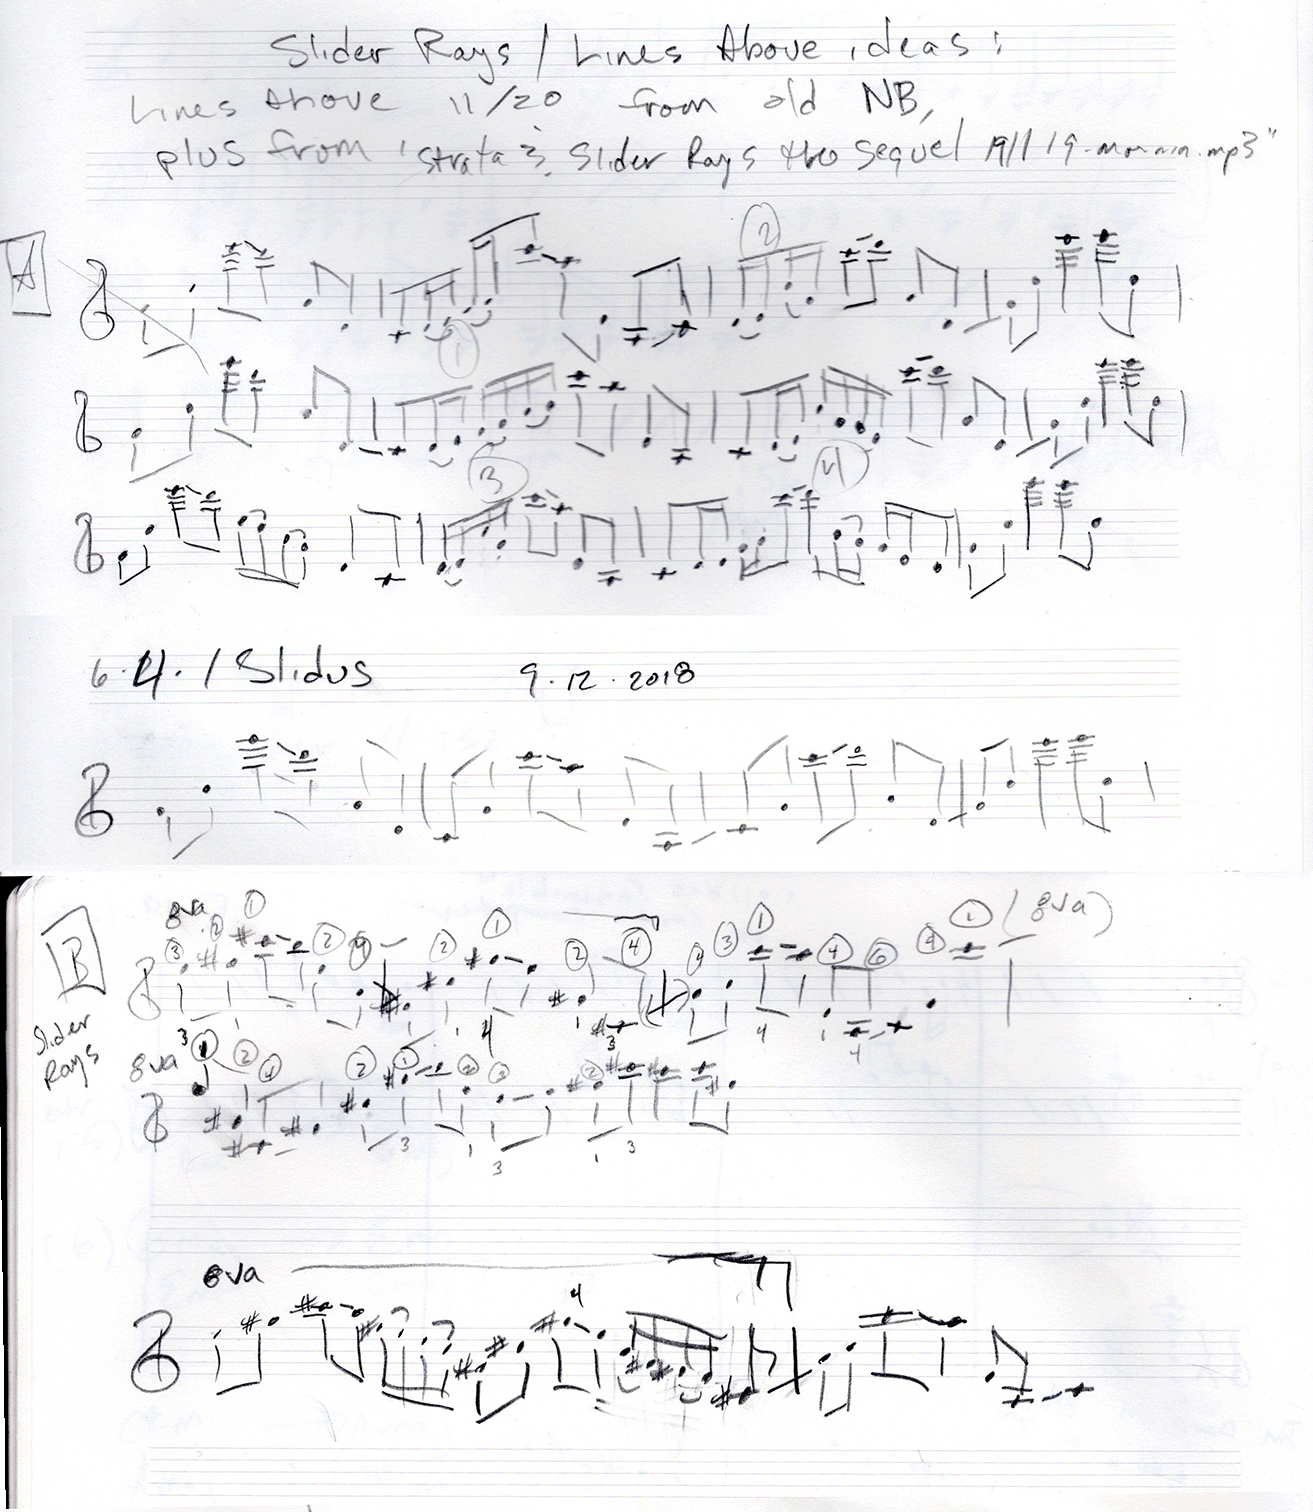 Slider Rays / Lines Above ideas:
Lines Above 11/20 from old NB,
plus from "strata 3. Slider Rays the sequel 19/11 19. .mp3"
A
2
1
3
4
6.4. / Slidus 9.12.2018
B
8va 3 2 1 2 4 2 1 2 4 4 3 1 4 6 4 1 (8va)
3 1 1 4 3 4 1 4
Slider
Rays
8va 1 2 4 2 1 2 3 2
3 3 1 3
8va
4